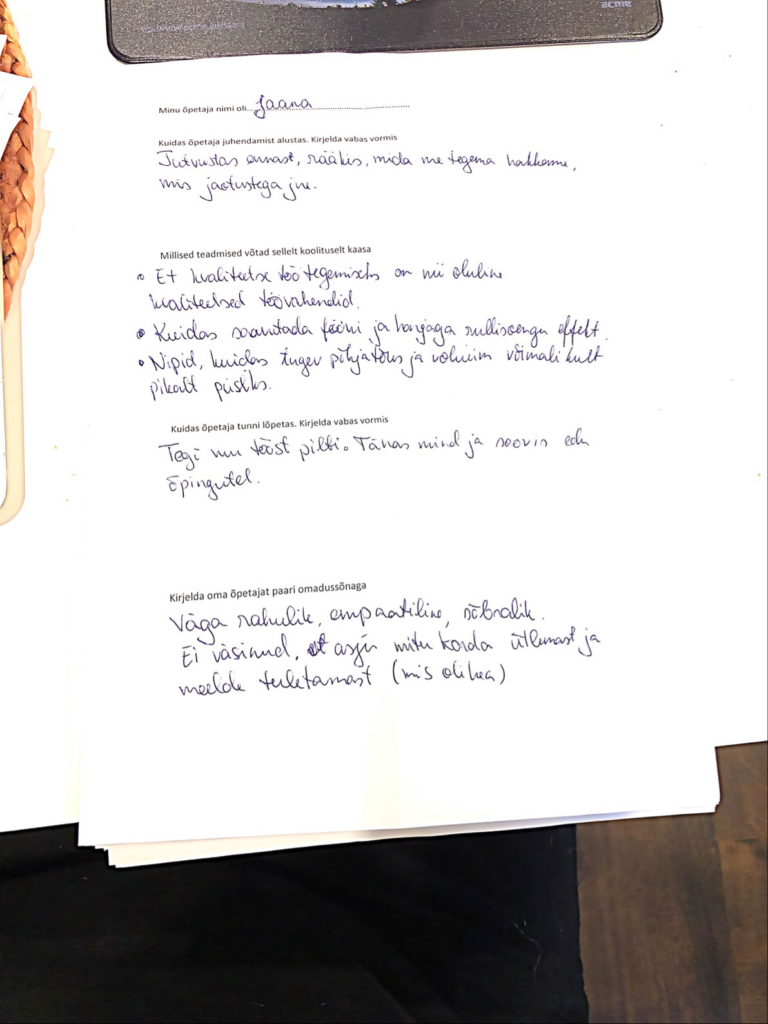 acme
Minu õpetaja nimi oli... Jaana
Kuidas õpetaja juhendamist alustas. Kirjelda vabas vormis
Tutvustas ennast, rääkis, mida me tegema hakkame,
mis jaotustega jne.
Millised teadmised võtad sellelt koolituselt kaasa
• Et kvaliteetse töö tegemiseks on nii oluline
kvaliteetsed töövahendid.
• Kuidas saavutada fööni ja harjaga rullisoengu effekt.
• Nipid, kuidas tugev põhjatõus ja voluum võimalikult
pikalt püsiks.
Kuidas õpetaja tunni lõpetas. Kirjelda vabas vormis
Tegi mu tööst pilti. Tänas mind ja soovis edu
õpingutel.
Kirjelda oma õpetajat paari omadussõnaga
Väga rahulik, empaatiline, sõbralik.
Ei väsinud, asju mitu korda ütlemast ja
meelde tuletamast (mis oli hea)